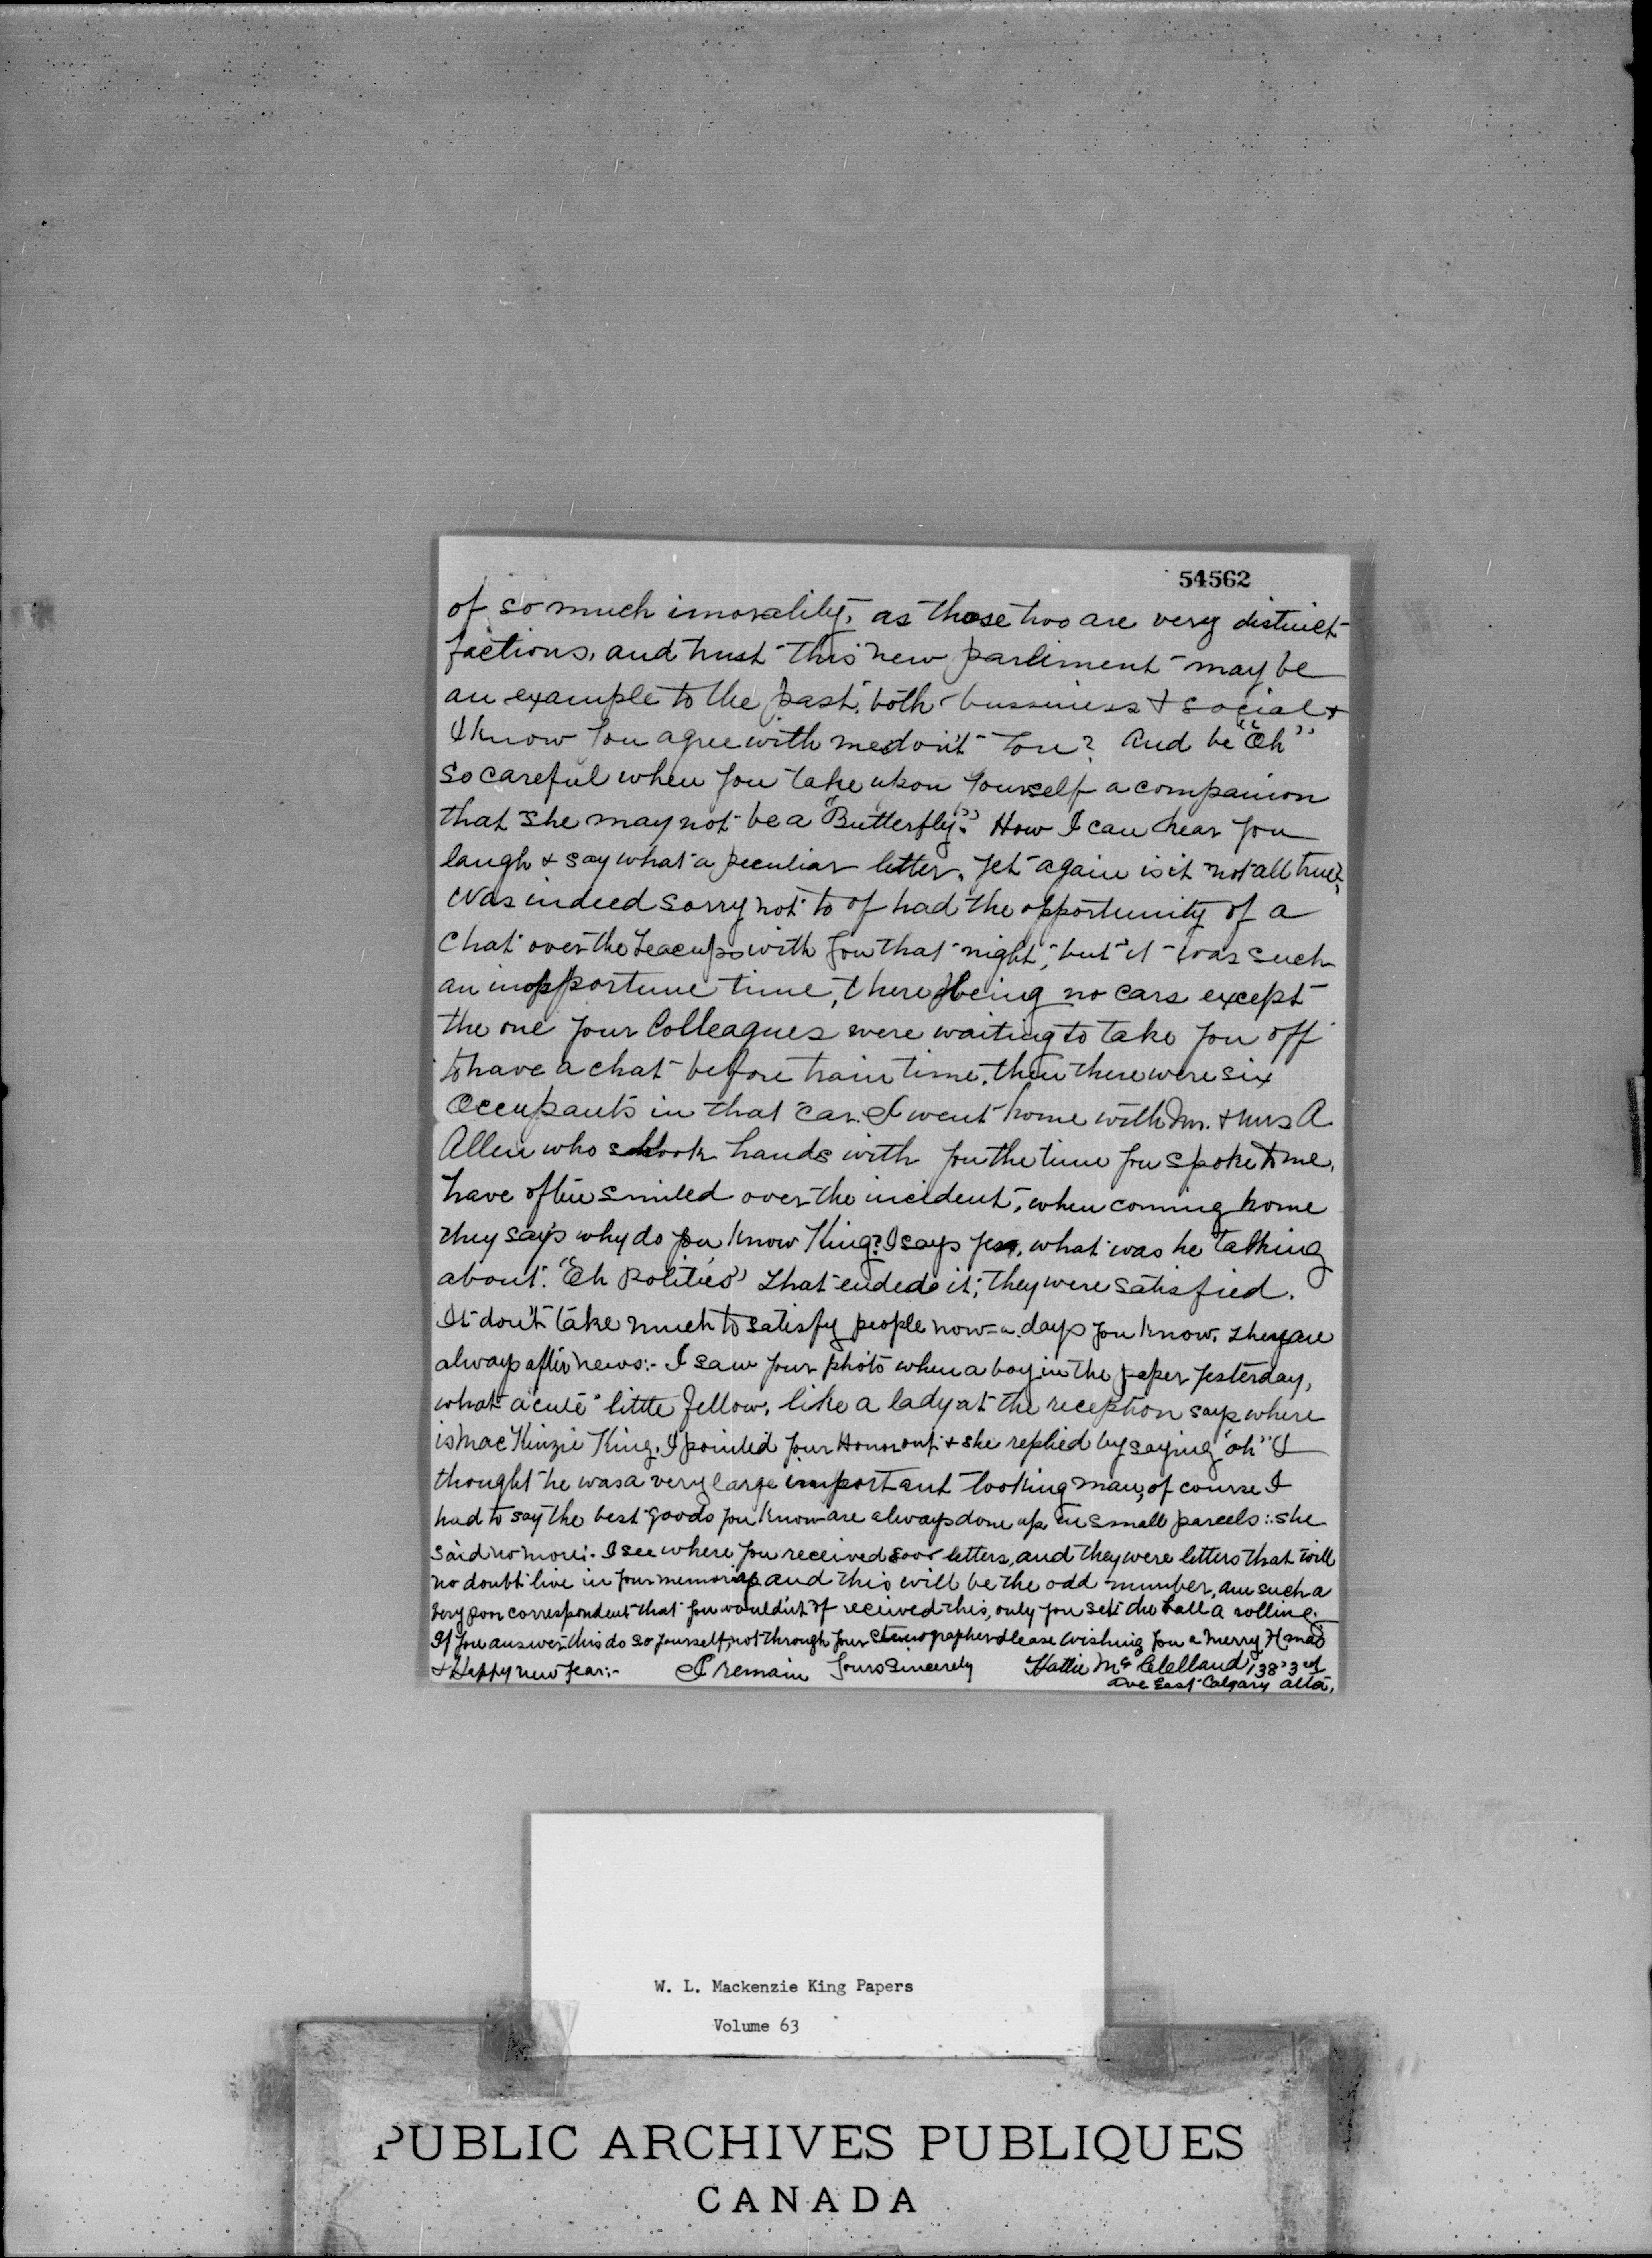 54562
of so much imorality, as those two are very distinct
factions, and trust this new parliment may be
an example to the past, both bussiness & social &
I know you agree with me don't you? And be "Oh"
so careful when you take upon yourself a companion
that she may not be a "Butterfly". How I can hear you
laugh & say what a peculiar letter, yet again is it not all true?
Was indeed sorry not to of had the opportunity of a
chat over the teacups with you that night, but it was such
an inopportune time, there being no cars except
the one your Colleagues were waiting to take you off
to have a chat before train time, then there were six
Occupants in that car. I went home with Mr. & Mrs A
Allen who shook hands with you the time you spoke to me,
have often smiled over the incident, when coming home
they says why do you know King? I says yes, what was he talking
about. "Oh Politics" that ended it; they were satisfied.
It don't take much to satisfy people now-a-days you know, they are
always after news:- I saw your photo when a boy in the paper yesterday,
what a cute little fellow, like a lady at the reception says where
is MacKinzie King, I pointed your Honor out & she replied by saying "oh" I
thought he was a very large important looking man, of course I
had to say the best goods you know are always done up in small parcels:. she
said no more:- I see where you received letters, and they were letters that will
no doubt live in your memories and this will be the odd number, am such a
very poor correspondent that you wouldn't of received this, only you set the ball a rolling.
If you answer this do so yourself, not through your stenographer please wishing you a Merry Xmas
& Happy new year:- I remain yours sincerely Hattie McClelland, 138 3rd
ave East Calgary alta,
W. L. Mackenzie King Papers
Volume 63
PUBLIC ARCHIVES PUBLIQUES
CANADA